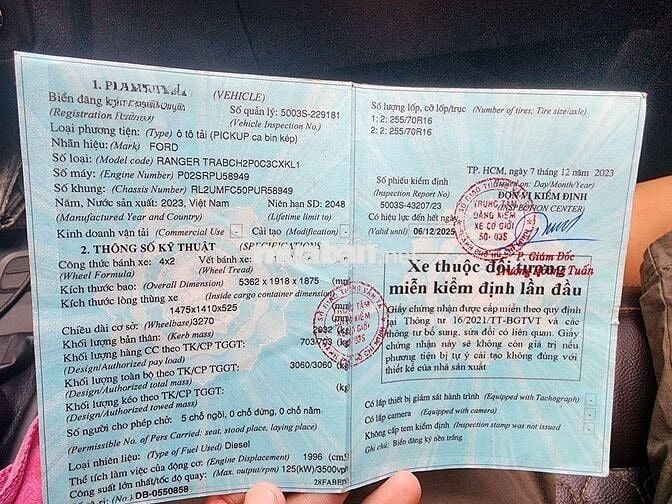 (VEHICLE)
Biển đăng
Số quản lý: 5003S-229181
(Registration
(Vehicle Inspection No.)
Loại phương tiện: (Type) ô tô tải (PICKUP ca bin kép)
Nhãn hiệu: (Mark) FORD
Số loại: (Model code) RANGER TRABCH2P0C3CXKL1
Số máy: (Engine Number) P02SRPU58949
Số khung: (Chassis Number) RL2UMFC50PUR58949
Năm, Nước sản xuất: 2023, Việt Nam Niên hạn SD: 2048
(Manufactured Year and Country) (Lifetime limit to)
Kinh doanh vận tải (Commercial Use) - Cải tạo (Modification) -
2. THÔNG SỐ KỸ THUẬT (SPECIFICATIONS)
Công thức bánh xe: 4x2 Vết bánh xe:
(Wheel Formula) (Wheel Tread)
Kích thước bao: (Overall Dimension) 5362 x 1918 x 1875
Kích thước lòng thùng xe (Inside cargo container dimension)
1475x1410x525
Chiều dài cơ sở: (Wheelbase) 3270
Khối lượng bản thân: (Kerb mass)
Khối lượng hàng CC theo TK/CP TGGT: 703/703 (kg)
(Design/Authorized pay load)
Khối lượng toàn bộ theo TK/CP TGGT: 3060/3060 (kg)
(Design/Authorized total mass)
Khối lượng kéo theo TK/CP TGGT: (kg)
(Design/Authorized towed mass)
Số người cho phép chở: 5 chỗ ngồi, 0 chỗ đứng, 0 chỗ nằm
(Permissible No. of Pers Carried: seat, stood place, laying place)
Loại nhiên liệu: (Type of Fuel Used) Diesel
Thể tích làm việc của động cơ: (Engine Displacement) 1996 (cm³)
Công suất lớn nhất/tốc độ quay: (Max. output/rpm) 125(kW)/3500vph
DB-0550858
Số lượng lốp, cỡ lốp/trục (Number of tires; Tire size/axle)
1: 2; 255/70R16
2: 2; 255/70R16
TP. HCM, ngày 7 tháng 12 năm 2023
on: Day/Month/Year)
Số phiếu kiểm định
(Inspection Report No)
5003S-43207/23
ĐƠN VỊ KIỂM ĐỊNH
(INSPECTION CENTER)
Có hiệu lực đến hết ngày
(Valid until) 06/12/2025
TRUNG TÂM
ĐĂNG KIỂM
XE CƠ GIỚI
50-03S
P. Giám Đốc
Tuấn
Xe thuộc đối tượng
miễn kiểm định lần đầu
Giấy chứng nhận được cấp miễn theo quy định
tại Thông tư 16/2021/TT-BGTVT và các
thông tư bổ sung, sửa đổi có liên quan. Giấy
chứng nhận này sẽ không còn giá trị nếu
phương tiện bị tự ý cải tạo không đúng với
thiết kế của nhà sản xuất
Có lắp thiết bị giám sát hành trình (Equipped with Tachograph) -
Có lắp camera (Equipped with camera) -
Không cấp tem kiểm định (Inspection stamp was not issued) -
Ghi chú: Biển đăng ký nền trắng